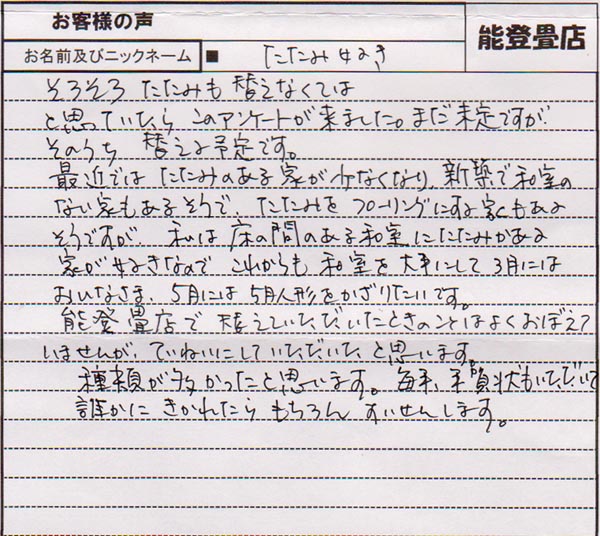 お客様の声
能登畳店
お名前及びニックネーム ■ たたみ好き
そろそろ たたみも 替えなくては
と思っていたら このアンケートが来ました。まだ未定ですが
そのうち 替える予定です。
最近では たたみのある 家が 少なくなり、新築で和室の
ない家もあるそうで、たたみを フローリングにする家もある
そうですが、私は 床の間のある和室にたたみがある
家が好きなので これからも 和室を 大事にして 3月には
おひなさま、5月には 5月人形をかざりたいです。
能登畳店で 替えていただいたときのことはよくおぼえて
いませんが、ていねいにしていただいたと思います。
種類が多かったと思います。毎年、年賀状もいただいて
誰かに きかれたら もちろん すいせんします。